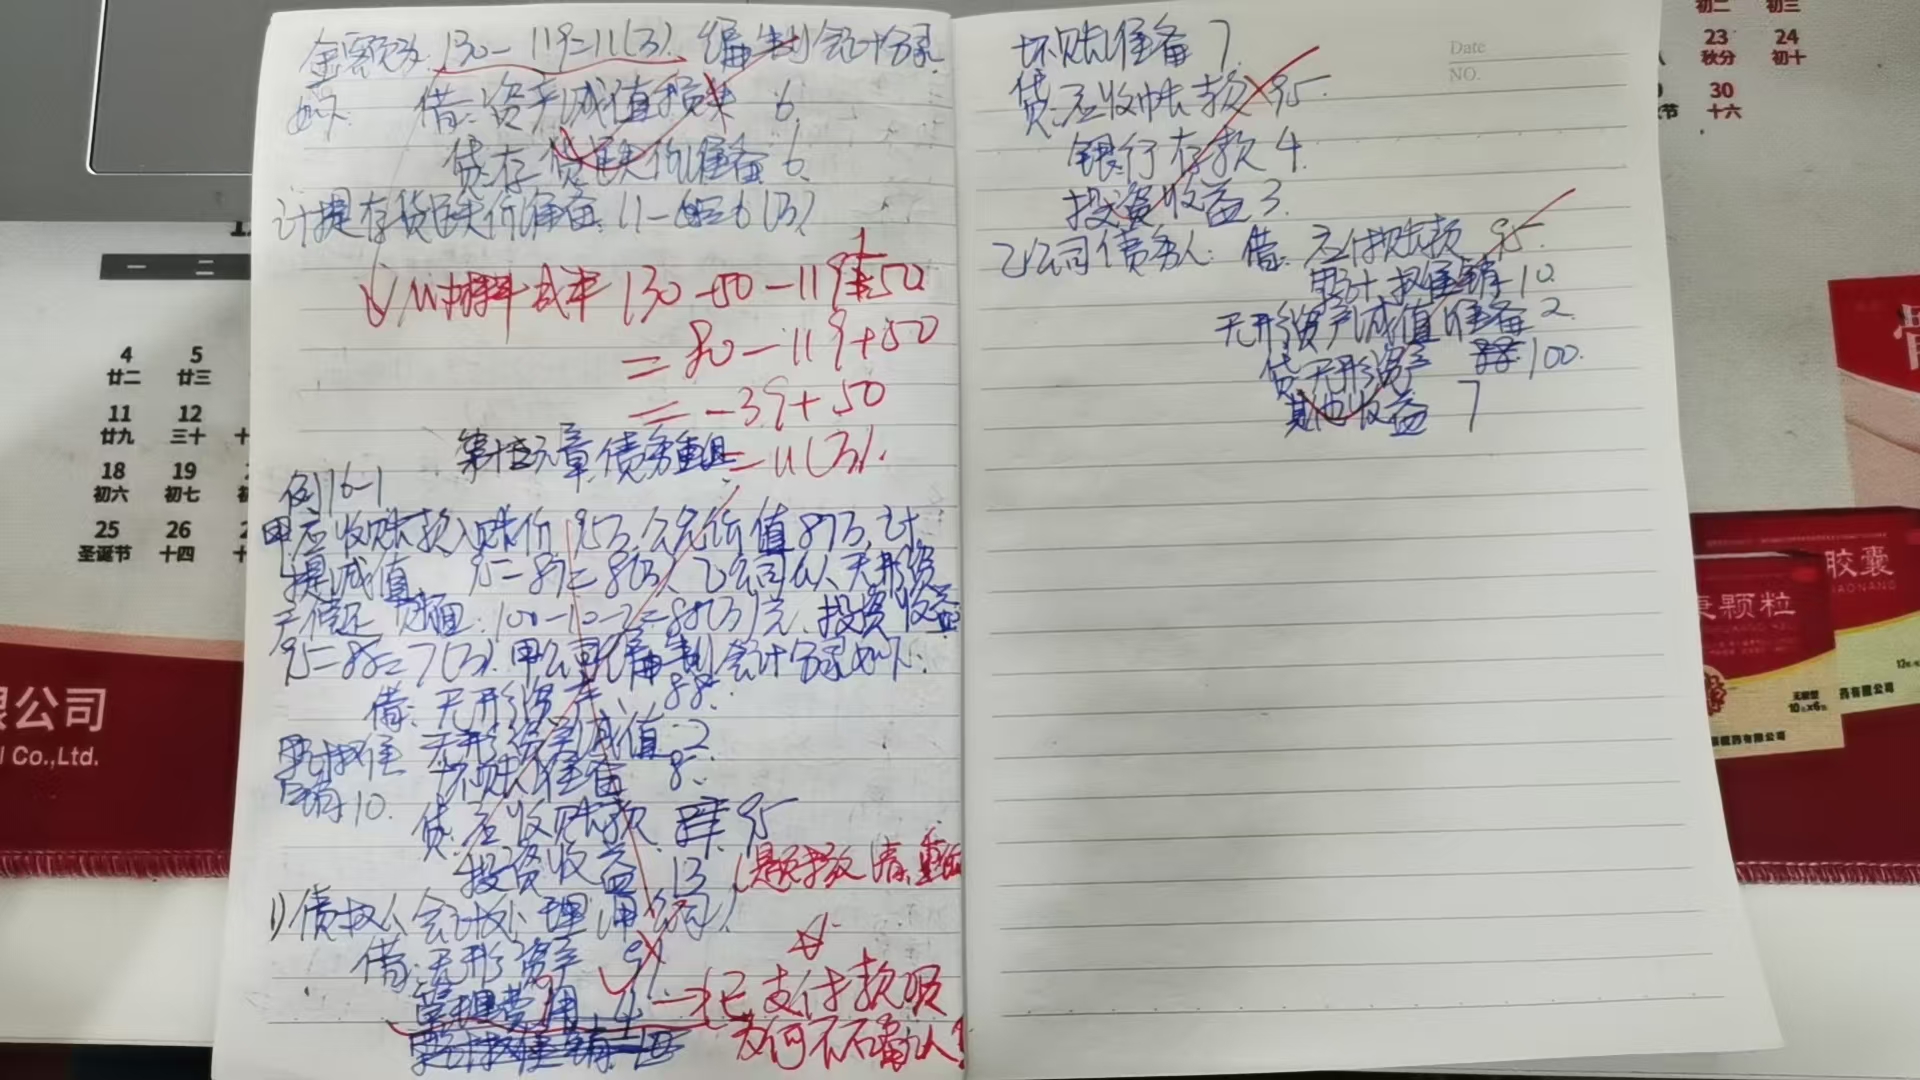 金额为:130-119=11(万). 编制会计分录
如下. 借:资产减值损失 6.
贷:存货跌价准备 6.
计提存货跌价准备. 11-5=6(万)
130-50-119+50
=80-119+50
=-39+50
=11(万).
章 债务重组
例16-1
甲应收账款入账价 95万.公允价值87万.计
提减值 95-87=8(万).乙公司以无形资
产偿还 账面:100-10-2=88(万)元.投资收益
95-88=7(万).甲公司编制会计分录如下:
借:无形资产 88.
无形资产减值 2
累计摊销 10. 坏账准备 8.
贷:应收账款 95
投资收益 13
1)债权人会计处理(甲公司)
借:无形资产 91
管理费用 4 —把支付款项
为何不确认!
坏账准备 7.
贷:应收帐款 95.
银行存款 4.
投资收益 3.
乙公司债务人: 借:应付账款 95.
累计摊销 10.
无形资产减值准备 2.
贷:无形资产 100.
其他收益 7
Date
NO.
初二 初三
23 24
秋分 初十
30
十六
一 二
4 5
廿二 廿三
11 12
廿九 三十
18 19
初六 初七
25 26
圣诞节 十四
限公司
l Co.,Ltd.
胶囊
颗粒
药有限公司